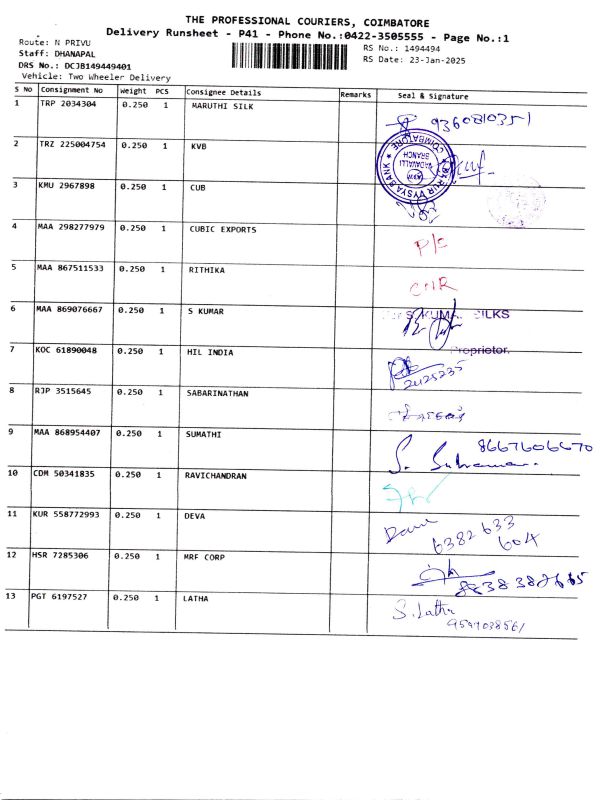 THE PROFESSIONAL COURIERS, COIMBATORE
Delivery Runsheet - P41 - Phone No.:0422-3505555 - Page No.:1
Route: N PRIVU
RS No.: 1494494
Staff: DHANAPAL
RS Date: 23-Jan-2025
DRS No.: DCJB149449401
Vehicle: Two Wheeler Delivery
S No Consignment No Weight PCS Consignee Details Remarks Seal & Signature
1 TRP 2034304 0.250 1 MARUTHI SILK 9360810351
2 TRZ 225004754 0.250 1 KVB
COIMBATORE
VADAVALLI
BRANCH
KARUR VYSYA BANK
3 KMU 2967898 0.250 1 CUB
4 MAA 298277979 0.250 1 CUBIC EXPORTS P/c
5 MAA 867511533 0.250 1 RITHIKA CNR
6 MAA 869076667 0.250 1 S KUMAR
S. KUMAR SILKS
Proprietor.
7 KOC 61890048 0.250 1 HIL INDIA
2425235
8 RJP 3515645 0.250 1 SABARINATHAN
9 MAA 868954407 0.250 1 SUMATHI 8667606670
10 CDM 50341835 0.250 1 RAVICHANDRAN
11 KUR 558772993 0.250 1 DEVA
6382 633
604
12 HSR 7285306 0.250 1 MRF CORP
8838382665
13 PGT 6197527 0.250 1 LATHA S. Latha